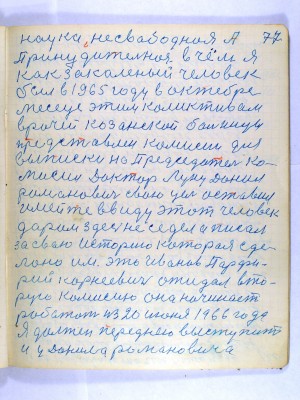 наука, несвободная А 77
Принудителноя в чём я
как закаленый человек
был в 1965 году в октебре
месеце этим коликтивам
врочей козанской болници
представлен комисии для
выписки но Председател ко-
мисии Доктор Луну Данил
романович свою цел оставил
имейте ввиду этот человек
даром здес не седел а писал
засваю историю которая сде-
лоно им. это Иванов Парфи-
рий корнеевич ожидал вто-
рую комисию она начинает
роботат из 20 июня 1966 года
Я должен переднею выступит
и у Данила романовича